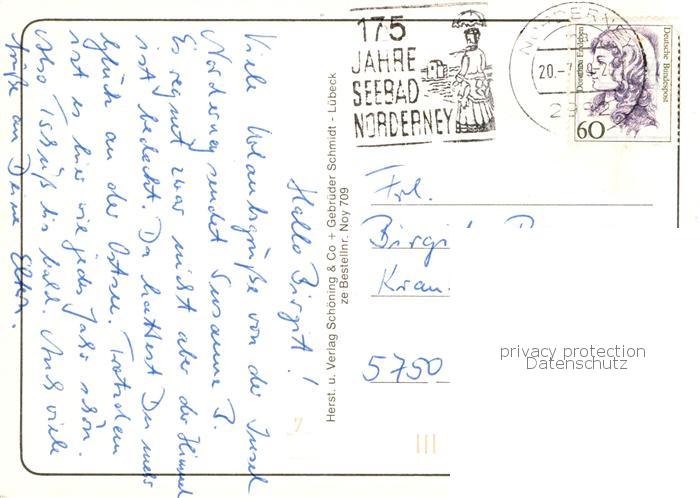 Hallo Birgit!
Viele Urlaubsgrüße von der Insel
Norderney sendet Susanne B.
Es regnet zwar nicht aber der Himmel
ist bedeckt. Da hattest Du mehr
Glück an der Ostsee. Trotzdem
ist es hier wie jedes Jahr schön.
Also Tschüß bis bald. Auch viele
Grüße an Deine Eltern.
Herst. u. Verlag Schöning & Co + Gebrüder Schmidt - Lübeck
ze Bestellnr. Noy 709
175
JAHRE
SEEBAD
NORDERNEY
NORDERN
20.-7.
Dorothea Erxleben
Deutsche Bundespost
60
Frl.
Birgi
Kran.
5750
privacy protection
Datenschutz